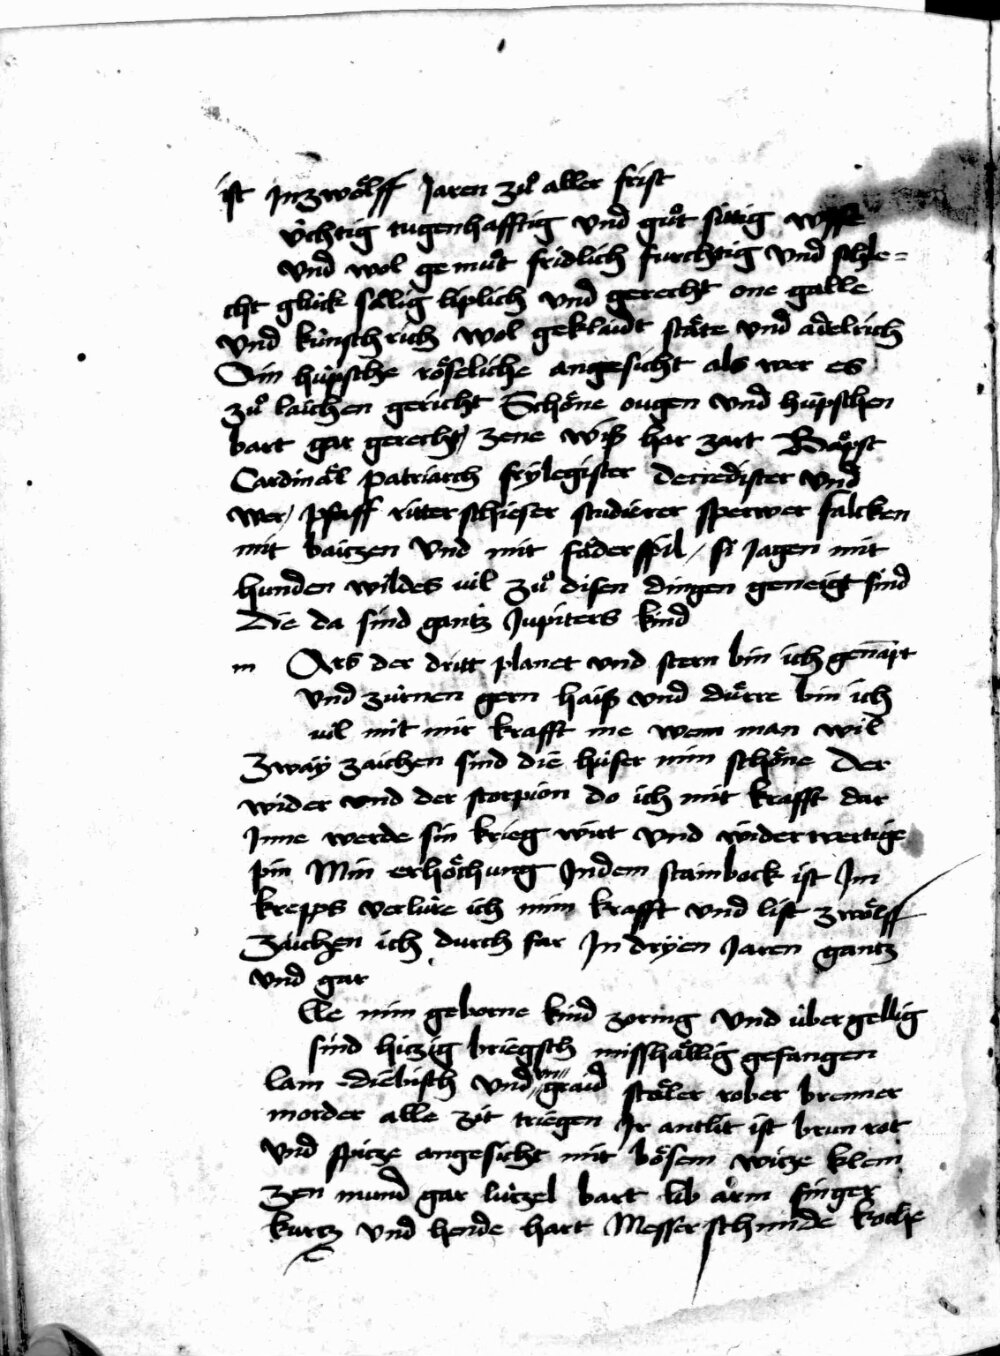 ist Jnzwoͤlff Jaren zuͦ aller frist
üchtig tugenhafftig vnd guͦt sittig wisse
vnd wol gemuͦt fridlich furchtig vnd schle=
cht glück sälig liplich vnd gerecht one galle
vnd künschrich wol geklaidt stäte vnd adelrich
Ain hüpsche röseliche angesicht als wer es
zuͦ lachen gericht Schöne ougen vnd hüpschen
bart gar gerecht / zene wiß har zart Baͤpst
Cardinäl patriarch frylegister decredister vnd
wer / pfaff ritter schieser studierer sperwer falcken
mit baitzen vnd mit fäderspil / si Jagen mit
hunden wildes vil zuͦ disen dingen geneigt sind
Die da sind gantz Jupiters kind
m Ars der dritt planet vnd stern bin ich genāpt
vnd zürnen gern haiß vnd dürre bin ich
vil mit mir krafft me wenn man wil
Zway zaichen sind die hüser min schöne Der
wider vnd der scorpion do ich mit krafft dar
Jnne werde sin krieg wirt vnd widerwertige
pin Min erhöchung Jndem stainbock ist Jm
krepps verlüre ich min krafft vnd list zwölff
Zaichen ich durch far Jn dryen Jaren gantz
vnd gar
lle min geborne kind zornig vnd übergellig
sind hitzig briegsch misshällig gefangen
lam diebisch vnd vn graid stäler rober brenner
morder alle zit triegen Jr antlit ist brun rot
vnd spitze angesicht mit bösem witze klein
zen mund gar lützel bart lib arm finger
kurtz vnd hende hart Messerschmide koche